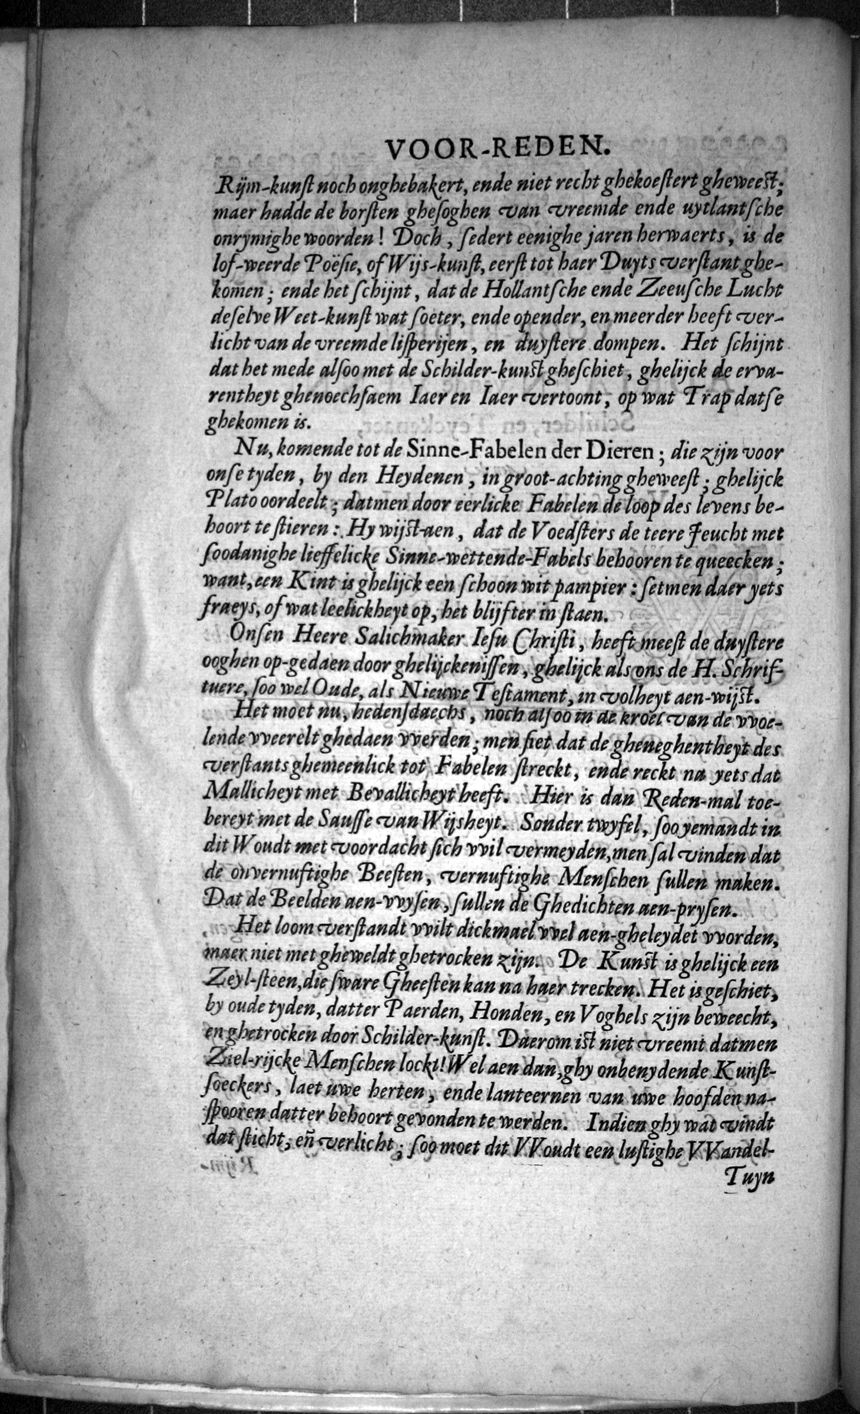 VOOR-REDEN.
Rijm-kunſt noch onghebakert, ende niet recht ghekoeſtert gheweeſt;
maer hadde de borſten gheſoghen van vreemde ende uytlantſche
onrymighe woorden! Doch, ſedert eenighe jaren herwaerts, is de
lof-weerde Poëſie, of Wijs-kunſt, eerſt tot haer Duyts verſtant ghe-
komen; ende het ſchijnt, dat de Hollantſche ende Zeeuſche Lucht
deſelve Weet-kunſt wat ſoeter, ende opender, en meerder heeft ver-
licht van de vreemde liſperijen, en duyſtere dompen. Het ſchijnt
dat het mede alſoo met de Schilder-kunſt gheſchiet, ghelijck de erva-
rentheyt ghenoechſaem Iaer en Iaer vertoont, op wat Trap datſe
ghekomen is.
Nu, komende tot de Sinne-Fabelen der Dieren; die zijn voor
onſe tyden, by den Heydenen, in groot-achting gheweeſt; ghelijck
Plato oordeelt; datmen door eerlicke Fabelen de loop des levens be-
hoort te ſtieren: Hy wijſt aen, dat de Voedſters de teere Jeucht met
ſoodanighe lieffelicke Sinne-wettende-Fabels behooren te queecken;
want, een Kint is ghelijck een ſchoon wit pampier: ſetmen daer yets
fraeys, of wat leelickheyt op, het blijfter in ſtaen.
Onſen Heere Salichmaker Ieſu Chriſti, heeft meeſt de duyſtere
ooghen op-gedaen door ghelijckeniſſen, ghelijck als ons de H. Schrif-
tuere, ſoo wel Oude, als Nieuwe Teſtament, in volheyt aen-wijſt.
Het moet nu, hedenſdaechs, noch alſoo in de kroel van de vvoe-
lende vveerelt ghedaen vverden; men ſiet dat de gheneghentheyt des
verſtants ghemeenlick tot Fabelen ſtreckt, ende reckt na yets dat
Mallicheyt met Bevallicheyt heeft. Hier is dan Reden-mal toe-
bereyt met de Sauſſe van Wijsheyt. Sonder twyfel, ſoo yemandt in
dit Woudt met voordacht ſich vvil vermeyden, men ſal vinden dat
de onvernuftighe Beeſten, vernuftighe Menſchen ſullen maken.
Dat de Beelden aen-vvyſen, ſullen de Ghedichten aen-pryſen.
Het loom verſtandt vvilt dickmael vvel aen-gheleydet vvorden,
maer niet met gheweldt ghetrocken zijn. De Kunſt is ghelijck een
Zeyl-ſteen, die ſware Gheeſten kan na haer trecken. Het is geſchiet,
by oude tyden, datter Paerden, Honden, en Voghels zijn beweecht,
en ghetrocken door Schilder-kunſt. Daerom iſt niet vreemt datmen
Ziel-rijcke Menſchen lockt! Wel aen dan, ghy onbenydende Kunſt-
ſoeckers, laet uwe herten, ende lanteernen van uwe hoofden na-
ſpooren datter behoort gevonden te werden. Indien ghy wat vindt
dat ſticht, eñ verlicht; ſoo moet dit VVoudt een luſtighe VVandel-
Tuyn